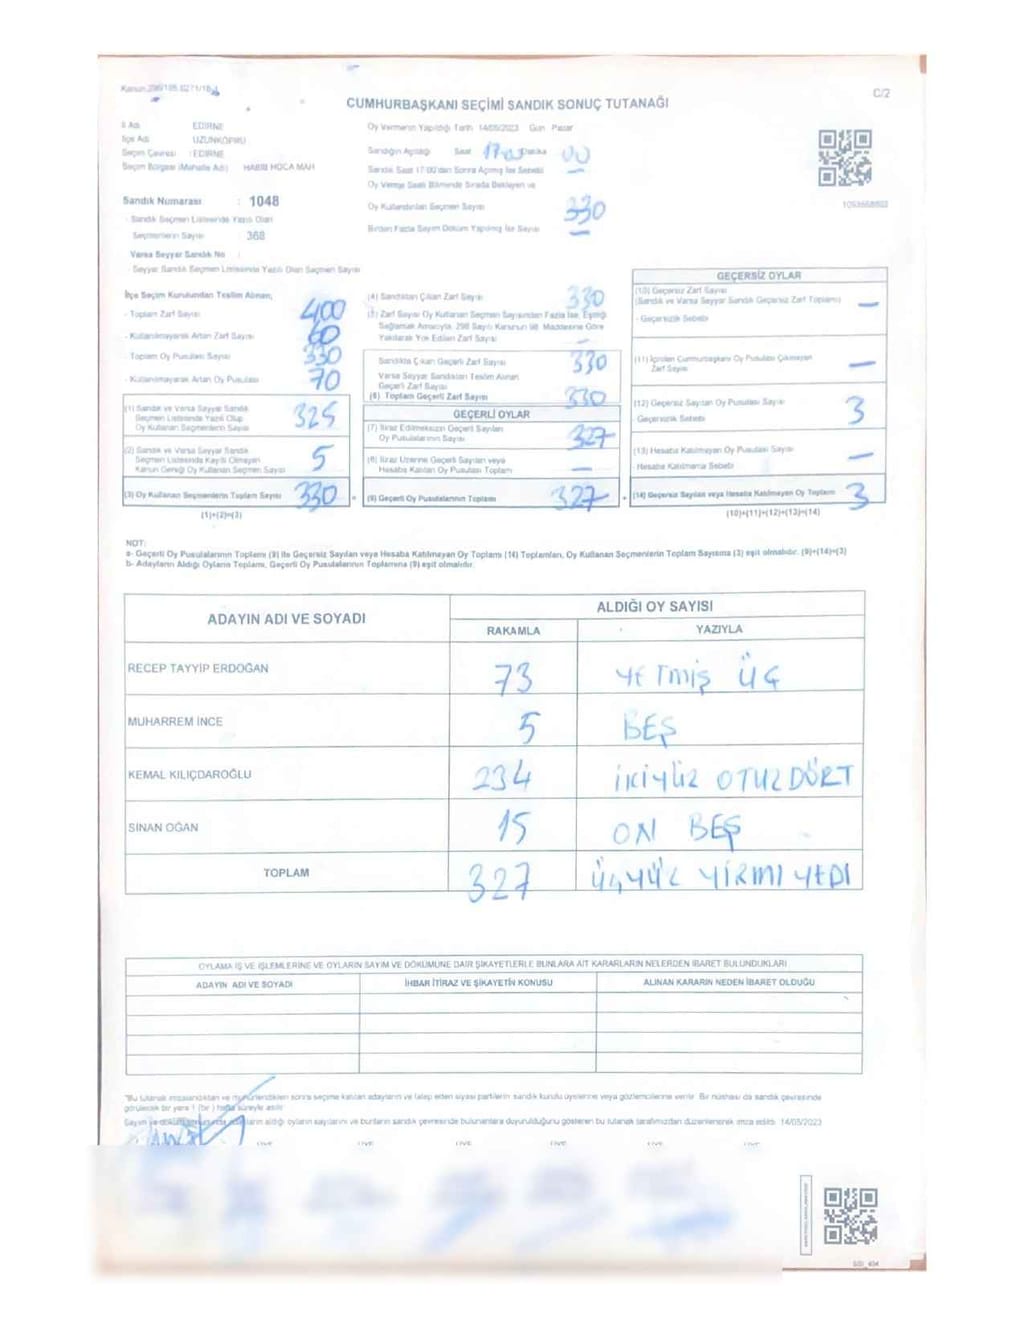 C/2
CUMHURBAŞKANI SEÇİMİ SANDIK SONUÇ TUTANAĞI
İl Adı EDİRNE
İlçe Adı UZUNKÖPRÜ
Seçim Çevresi : EDİRNE
Seçim Bölgesi (Mahalle Adı) HABİB HOCA MAH
Sandık Numarası : 1048
- Sandık Seçmen Listesinde Yazılı Olan
Seçmenlerin Sayısı 368
Varsa Seyyar Sandık No :
- Seyyar Sandık Seçmen Listesinde Yazılı Olan Seçmen Sayısı
Oy Vermenin Yapıldığı Tarih 14/05/2023 Gün Pazar
Sandığın Açıldığı Saat Dakika 00
Sandık Saat 17:00'dan Sonra Açılmış İse Sebebi —
Oy Verme Saati Bitiminde Sırada Bekleyen ve
Oy Kullandırılan Seçmen Sayısı 330
Birden Fazla Sayım Döküm Yapılmış İse Sayısı —
İlçe Seçim Kurulundan Teslim Alınan;
- Toplam Zarf Sayısı 400
- Kullanılmayarak Artan Zarf Sayısı
- Toplam Oy Pusulası Sayısı 330
- Kullanılmayarak Artan Oy Pusulası 70
(1) Sandık ve Varsa Seyyar Sandık
Seçmen Listesinde Yazılı Olup
Oy Kullanan Seçmenlerin Sayısı 325
(2) Sandık ve Varsa Seyyar Sandık
Seçmen Listesinde Kayıtlı Olmayan
Kanun Gereği Oy Kullanan Seçmen Sayısı 5
(3) Oy Kullanan Seçmenlerin Toplam Sayısı 330
(1)+(2)=(3)
(4) Sandıktan Çıkan Zarf Sayısı 330
(5) Zarf Sayısı Oy Kullanan Seçmen Sayısından Fazla İse, Eşitliği
Sağlamak Amacıyla, 298 Sayılı Kanunun 98. Maddesine Göre
Yakılarak Yok Edilen Zarf Sayısı —
Sandıkta Çıkan Geçerli Zarf Sayısı 330
Varsa Seyyar Sandıktan Teslim Alınan
Geçerli Zarf Sayısı
(6) Toplam Geçerli Zarf Sayısı 330
GEÇERLİ OYLAR
(7) İtiraz Edilmeksizin Geçerli Sayılan
Oy Pusulalarının Sayısı 327
(8) İtiraz Üzerine Geçerli Sayılan veya
Hesaba Katılan Oy Pusulası Toplamı —
(9) Geçerli Oy Pusulalarının Toplamı 327
GEÇERSİZ OYLAR
(10) Geçersiz Zarf Sayısı
(Sandık ve Varsa Seyyar Sandık Geçersiz Zarf Toplamı) —
- Geçersizlik Sebebi
(11) İçinden Cumhurbaşkanı Oy Pusulası Çıkmayan
Zarf Sayısı —
(12) Geçersiz Sayılan Oy Pusulası Sayısı 3
- Geçersizlik Sebebi
(13) Hesaba Katılmayan Oy Pusulası Sayısı —
- Hesaba Katılmama Sebebi
(14) Geçersiz Sayılan veya Hesaba Katılmayan Oy Toplamı 3
(10)+(11)+(12)+(13)=(14)
NOT:
a- Geçerli Oy Pusulalarının Toplamı (9) ile Geçersiz Sayılan veya Hesaba Katılmayan Oy Toplamı (14) Toplamları, Oy Kullanan Seçmenlerin Toplam Sayısına (3) eşit olmalıdır. (9)+(14)=(3)
b- Adayların Aldığı Oyların Toplamı, Geçerli Oy Pusulalarının Toplamına (9) eşit olmalıdır.
ADAYIN ADI VE SOYADI ALDIĞI OY SAYISI
RAKAMLA YAZIYLA
RECEP TAYYİP ERDOĞAN 73 YETMİŞ ÜÇ
MUHARREM İNCE 5 BEŞ
KEMAL KILIÇDAROĞLU 234 İKİYÜZ OTUZ DÖRT
SİNAN OĞAN 15 ON BEŞ
TOPLAM 327 ÜÇYÜZ YİRMİ YEDİ
OYLAMA İŞ VE İŞLEMLERİNE VE OYLARIN SAYIM VE DÖKÜMÜNE DAİR ŞİKAYETLERLE BUNLARA AİT KARARLARIN NELERDEN İBARET BULUNDUKLARI
ADAYIN ADI VE SOYADI İHBAR İTİRAZ VE ŞİKAYETİN KONUSU ALINAN KARARIN NEDEN İBARET OLDUĞU
"Bu tutanak imzalandıktan ve mühürlendikten sonra seçime katılan adayların ve talep eden siyasi partilerin sandık kurulu üyelerine veya gözlemcilerine verilir. Bir nüshası da sandık çevresinde
görülecek bir yere 1 (bir) hafta süreyle asılır.
aldığı oyların sayılarını ve bunların sandık çevresinde bulunanlara duyurulduğunu gösteren bu tutanak tarafımızdan düzenlenerek imza edildi. 14/05/2023